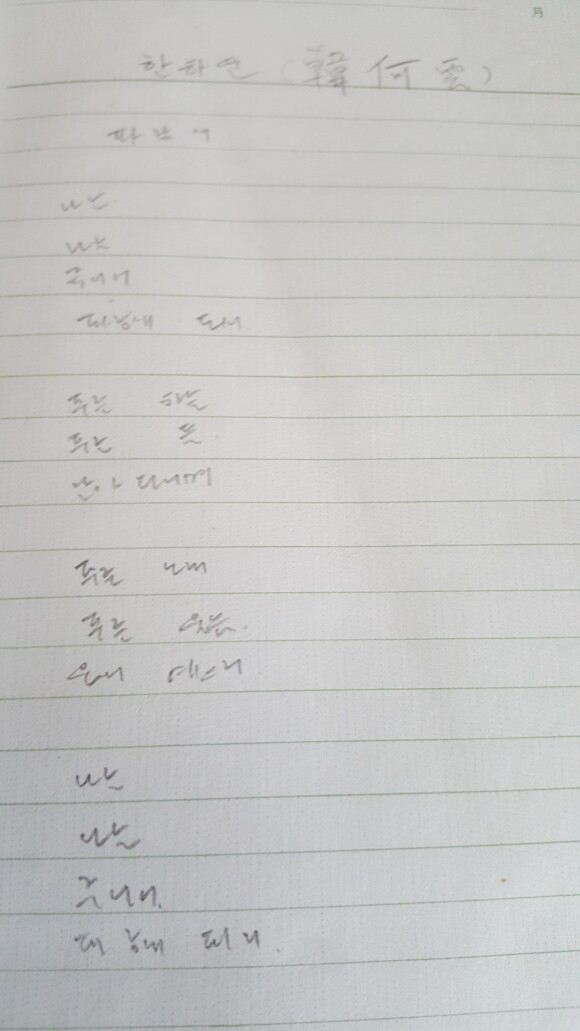 月
한하운 (韓何雲)
파랑새
나는
나는
죽어서
파랑새 되어
푸른 하늘
푸른 들
날아다니며
푸른 노래
푸른 울음
울어 예으리
나는
나는
죽어서
파랑새 되리